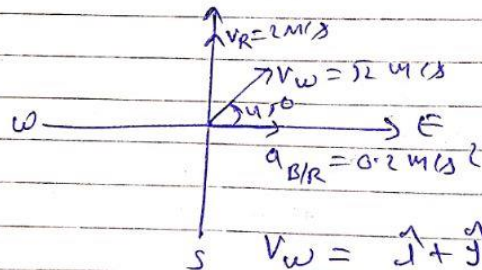 V_R = 2 m/s
V_w = √2 m/s
45°
W
E
a_B/R = 0.2 m/s²
S
V_w = î + ĵ